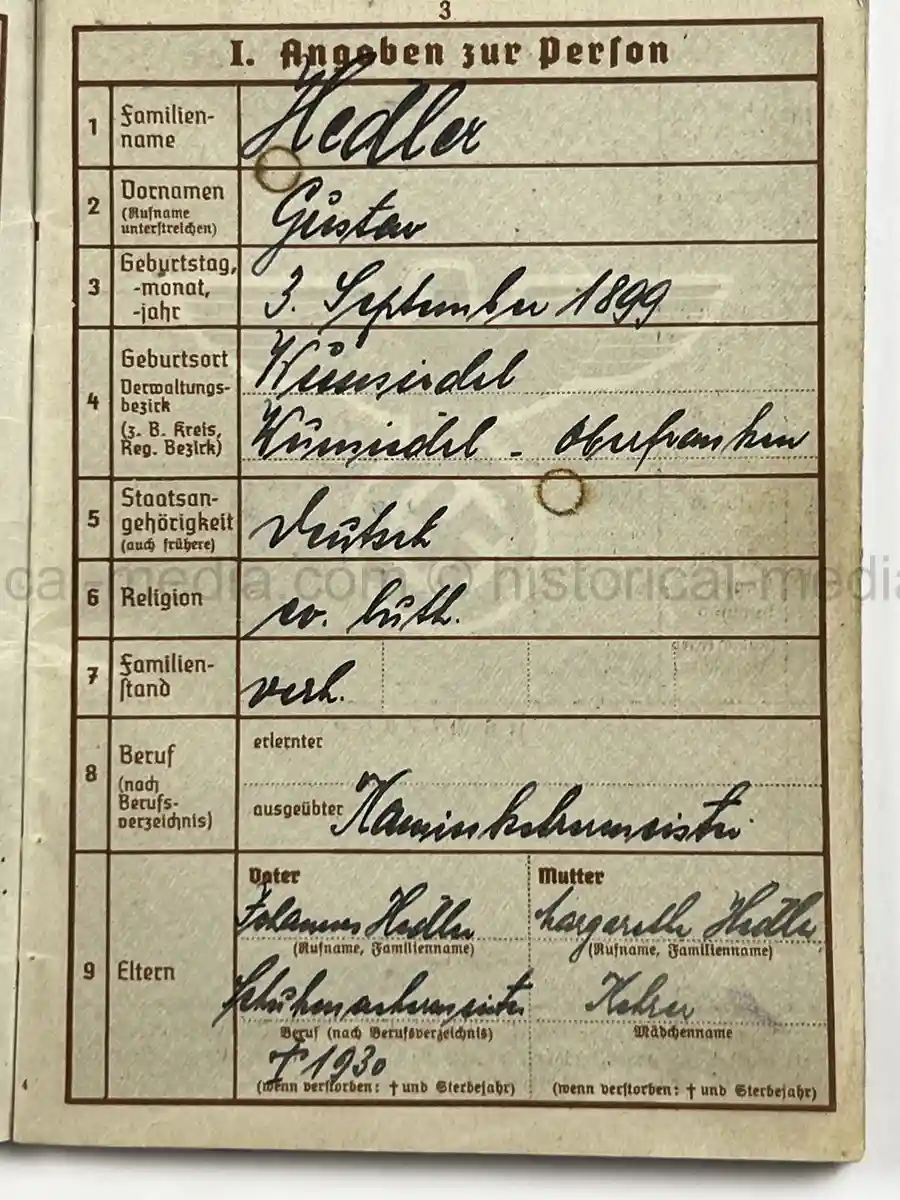 3
I. Angaben zur Person
1 Familien-
name
Hedler
2 Vornamen
(Rufname
unterstreichen)
Gustav
3 Geburtstag,
-monat,
-jahr
3. September 1899
4 Geburtsort
Verwaltungs-
bezirk
(z. B. Kreis,
Reg. Bezirk)
Wunsiedel
Wunsiedel - Oberfranken
5 Staatsan-
gehörigkeit
(auch frühere)
Deutsch
cal-media.com © historical-media
6 Religion
ev. luth.
7 Familien-
stand
verh.
8 Beruf
(nach
Berufs-
verzeichnis)
erlernter
ausgeübter Kaminkehrermeister
9 Eltern
Vater
Johannes Hedler
(Rufname, Familienname)
Schuhmachermeister
Beruf (nach Berufsverzeichnis)
† 1930
(wenn verstorben: † und Sterbejahr)
Mutter
Margareth Hedler
(Rufname, Familienname)
Mädchenname
(wenn verstorben: † und Sterbejahr)
4